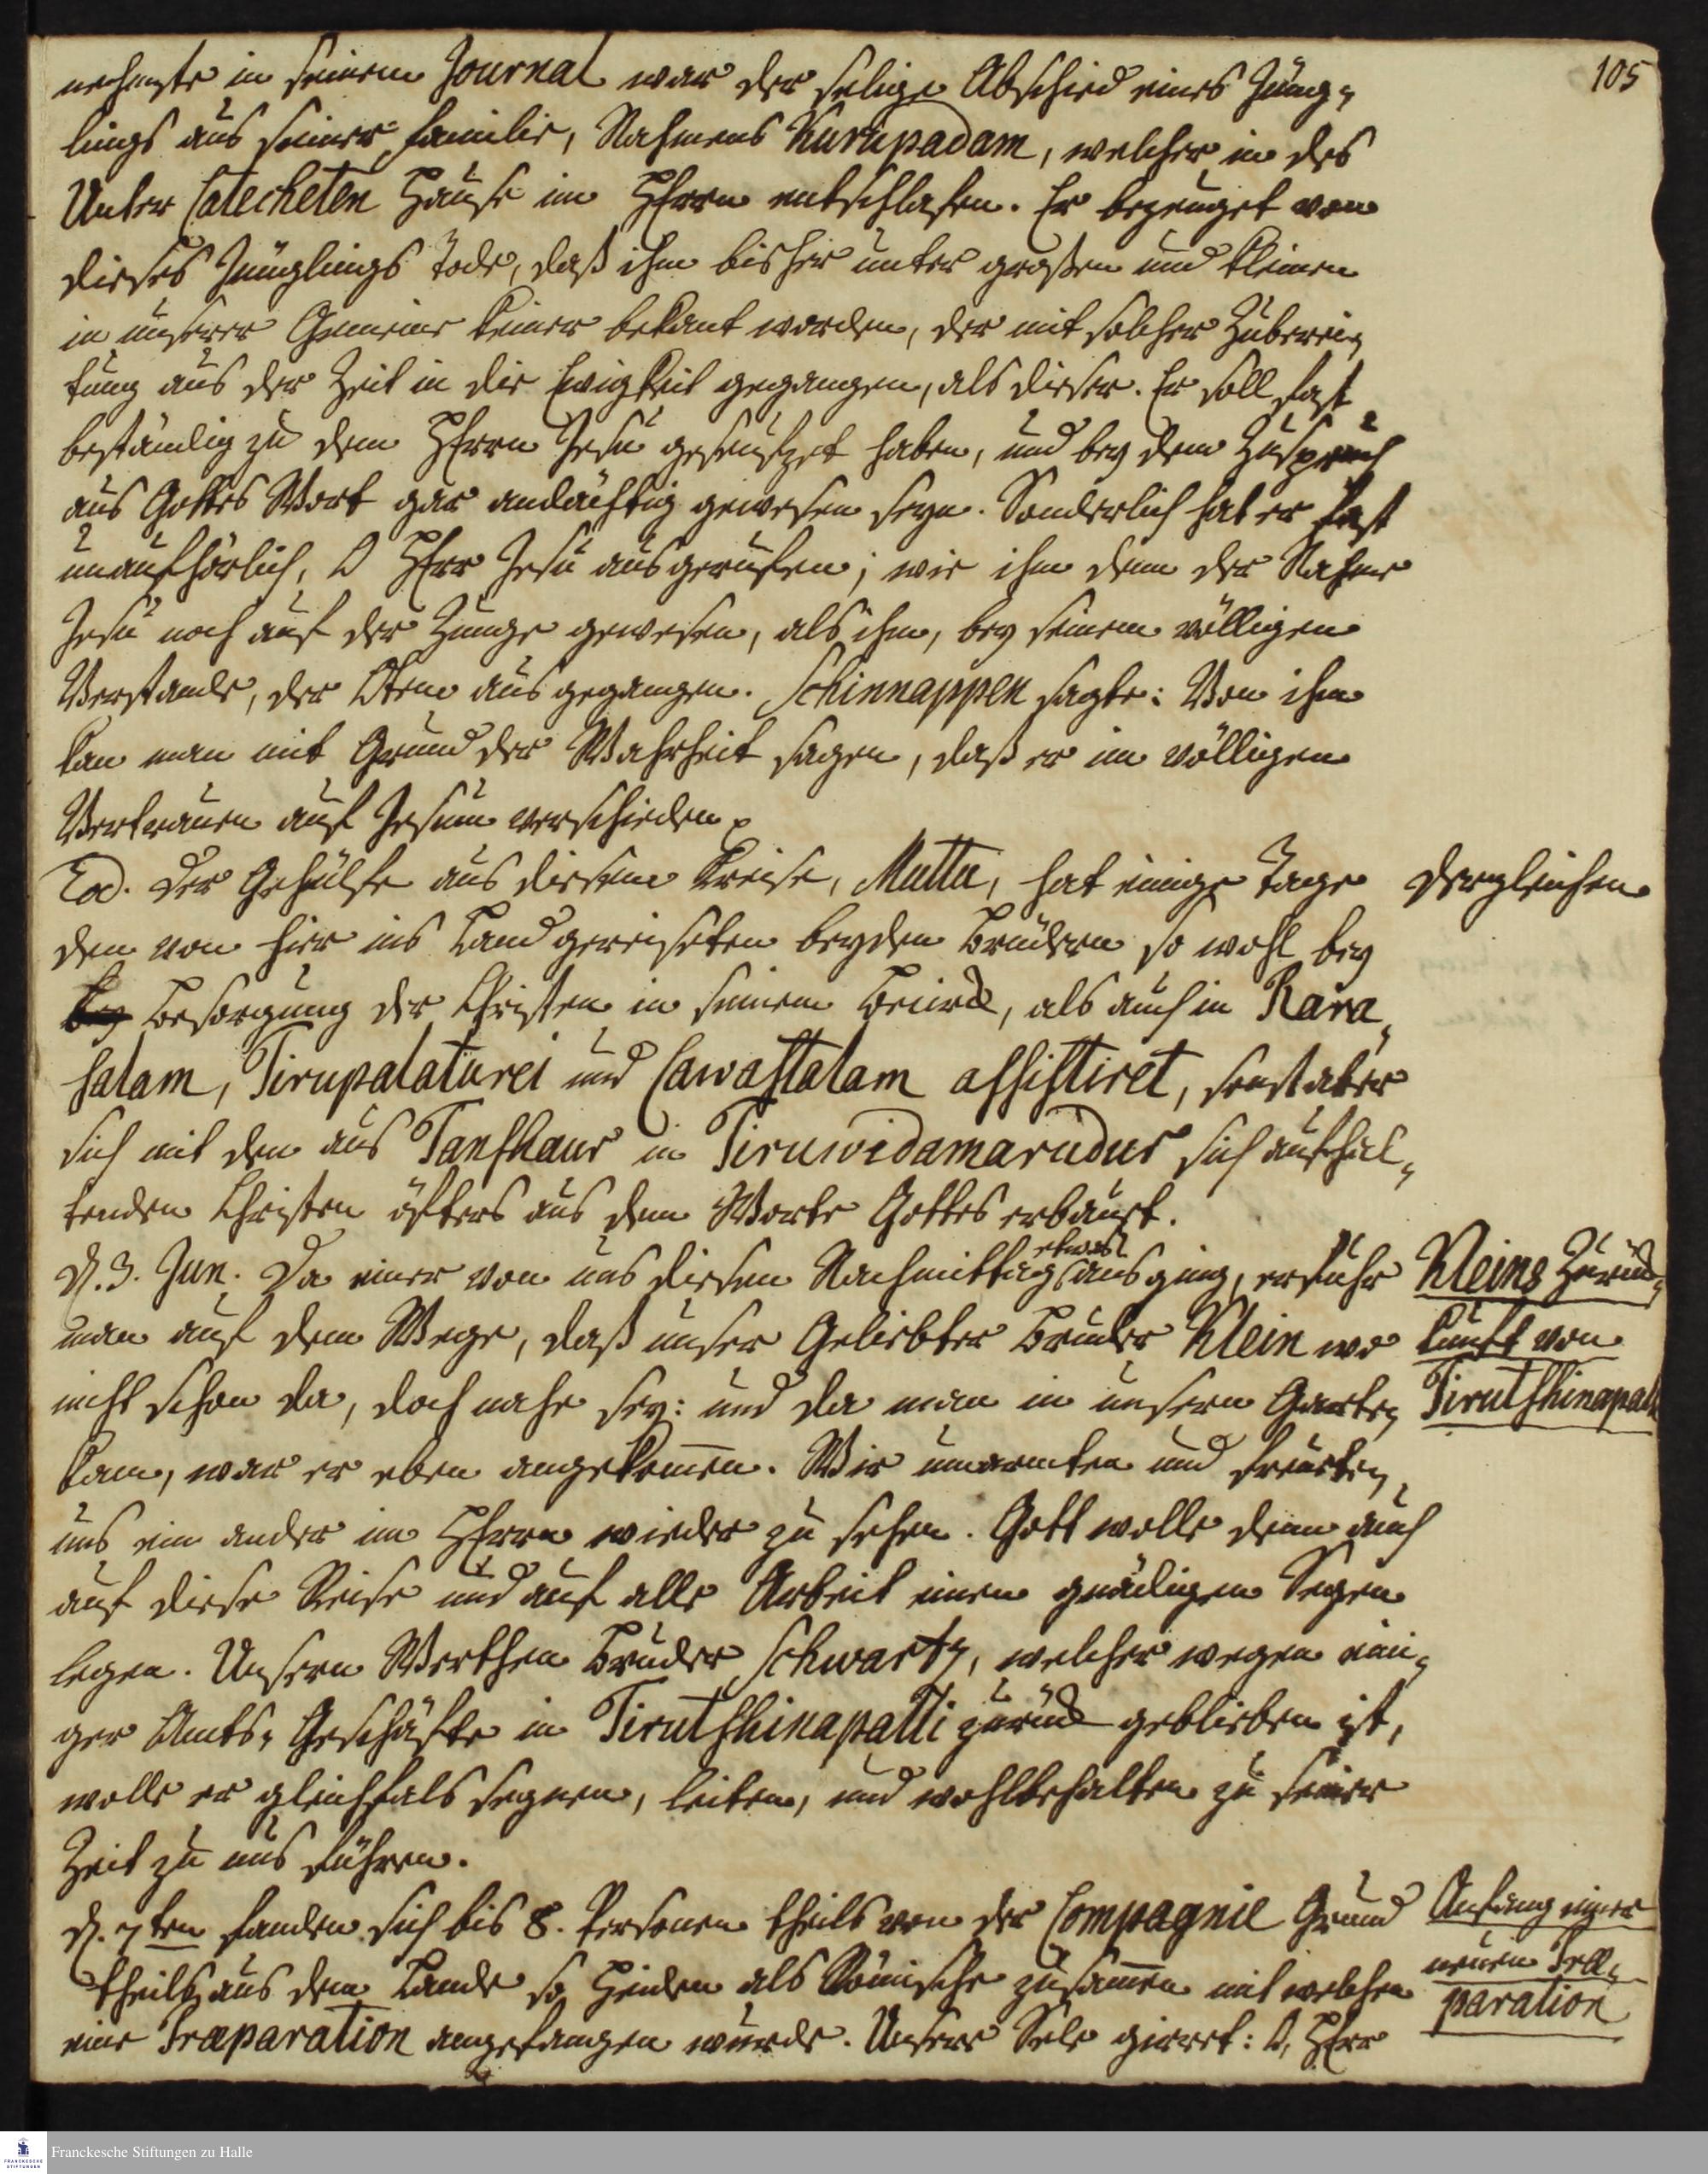 105
nehmste in seinem Journal war der selige Abschied eines Jüng-
lings aus seiner familie, Nahmens Kurupadam, welcher in des
Unter Catecheten Hause im HErrn entschlafen. Er bezeuget von
dieses Jünglings Tode, daß ihm bisher unter großen und kleinen
in unserer Gemeine keiner bekant worden, der mit solcher Zuberei-
tung aus der Zeit in die Ewigkeit gegangen, als dieser. Er soll fast
beständig zu dem HErrn Jesu geseufzet haben, und bey dem Zuspruch
aus Gottes Wort gar andächtig gewesen seyn. Sonderlich hat er fast
unaufhörlich, O HErr Jesu ausgerufen; wie ihm denn der Nahme
Jesu noch auf der Zunge gewesen, als ihm, bey seinem völligen
Verstande, der Otem ausgegangen. Schinnappen sagte: Von ihm
kan man mit Grund der Wahrheit sagen, daß er im völligen
Vertrauen auf Jesum verschieden.
Eod. Der Gehülfe aus diesem Kreise, Muttu, hat einige Tage
dergleichen
den von hier ins Land gereiseten beyden Brüdern so wohl bey
bey Besorgung der Christen in seinem Bezirck, als auch in Rara-
salam, Tirupalaturei und Cawastalam assistiret, sonst aber
sich mit den aus Tanshaur in Tiruwidamarudur sich aufhal-
tenden Christen öfters aus dem Worte Gottes erbauet.
d. 3. Jun. Da einer von uns diesen Nachmittag etwas ausging, erfuhr
Kleins Zurück-
man auf dem Wege, daß unser Geliebter Bruder Klein wo
kunft von
nicht schon da, doch nahe sey: und da man in unsern Garten
Tirutshinapalli
kam, war er eben angekommen. Wir umarmten und freueten
uns ein ander im HErrn wieder zu sehen. Gott wolle denn auch
auf diese Reise und auf alle Arbeit einen gnädigen Segen
legen. Unsern Werthen Bruder Schwartz, welcher wegen eini-
ger Amts-Geschäfte in Tirutshinapalli zurück geblieben ist,
wolle er gleichfals segnen, leiten, und wohlbehalten zu seiner
Zeit zu uns führen.
d. 7ten fanden sich bis 8. Personen theils von der Compagnie Grund
Anfang einer
theils aus dem Lande so Heiden als Römische zusammen mit welchen
neuen Præ-
eine Præparation angefangen wurde. Unsere Sele girret: O, HErr
paration
Franckesche Stiftungen zu Halle